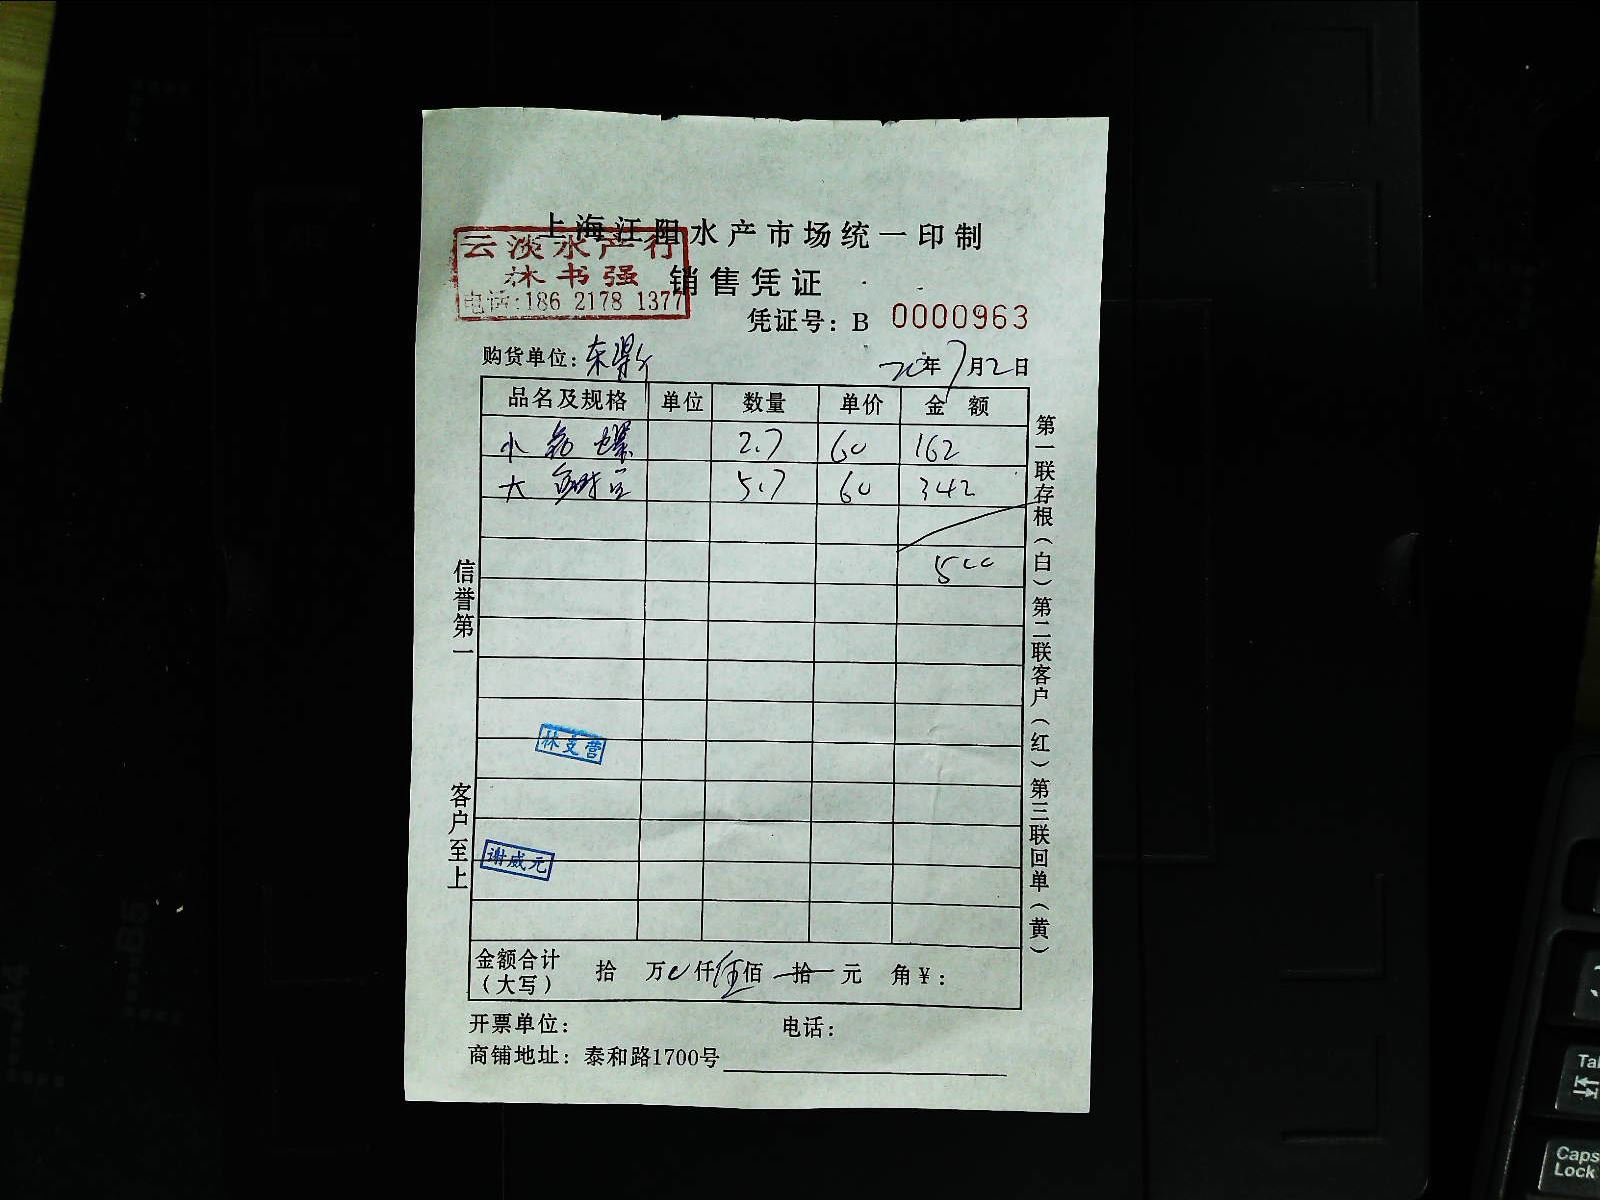 上海江阳水产市场统一印制
云淡水产行
林书强
电话:186 2178 1377
销售凭证
凭证号: B 0000963
购货单位: 东
年7月2日
品名及规格 单位 数量 单价 金额
小 鲍 螺 2.7 60 162
大 5.7 60 342
500
信誉第一
客户至上
林支营
谢威元
第一联存根(白)第二联客户(红)第三联回单(黄)
金额合计 拾 万 仟伍佰 拾 元 角¥:
(大写)
开票单位: 电话:
商铺地址: 泰和路1700号
A4
B5
Tab
Caps Lock